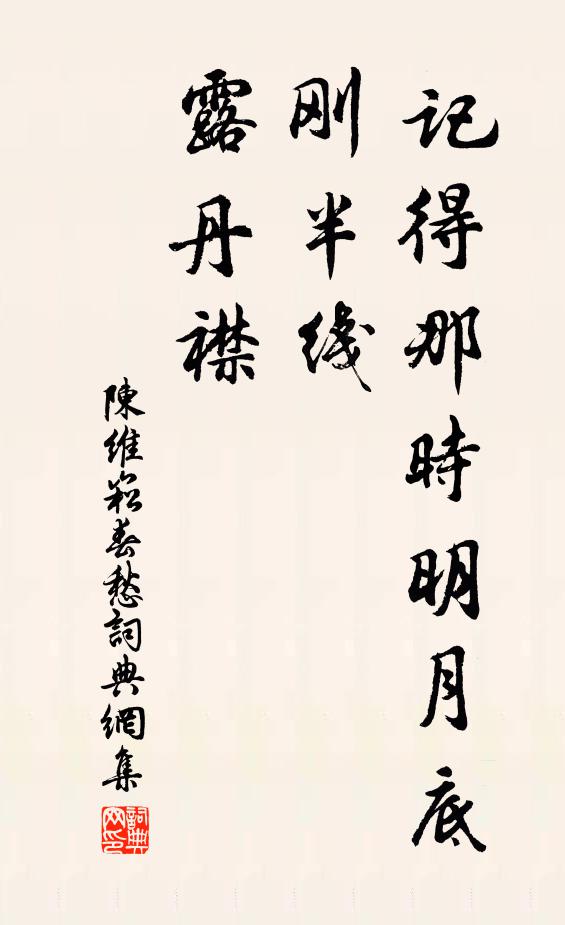 記得那時明月底
刚半綫
露丹襟
陳維崧春愁詞典網集
詞典網印